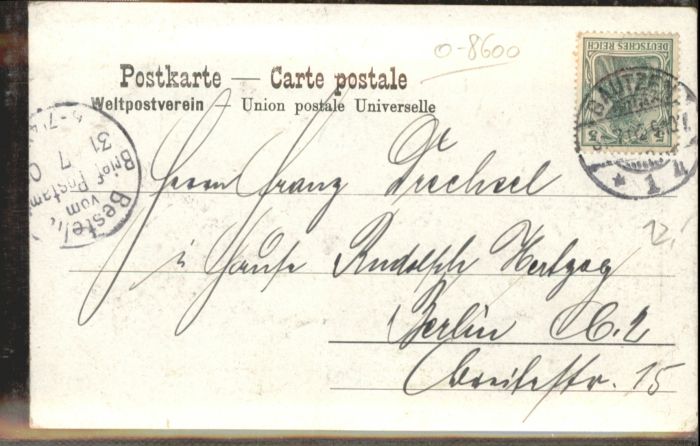 o-8600
Postkarte — Carte postale
Weltpostverein — Union postale Universelle
DEUTSCHES REICH
5 5
BAUTZEN
* 1
Bestellt
vom
Postamte
31 7
Herrn Franz Drechsel
i Hause Rudolph Hertzog
Berlin C. 2
Breitestr. 15
12,